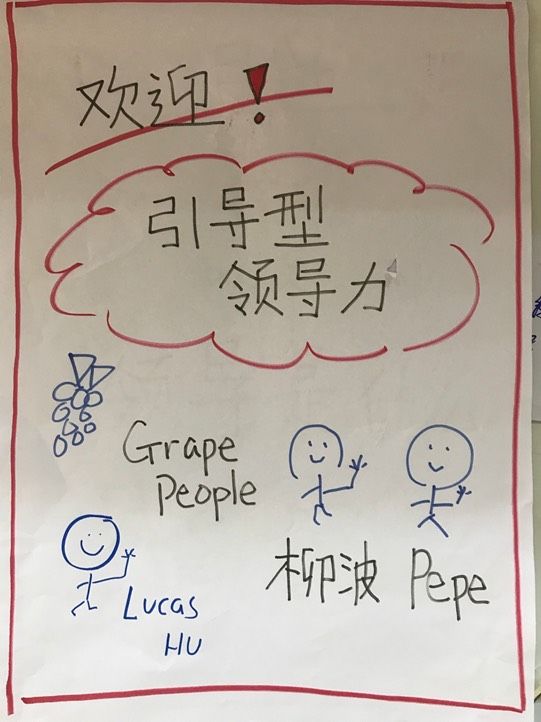 欢迎!
引导型
领导力
Grape
People
柳波 Pepe
Lucas
HU